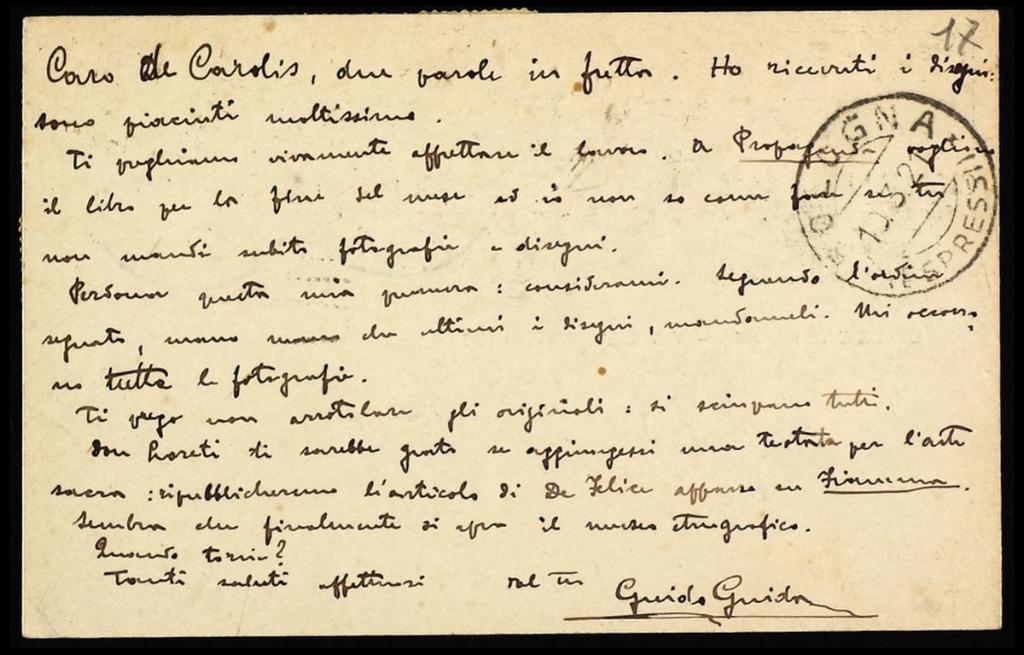 17
Caro De Carolis, due parole in fretta. Ho ricevuti i disegni:
sono piaciuti moltissimo.
Ti preghiamo vivamente affrettare il lavoro. A Propaganda vogliono
il libro per la fine del mese ed io non so come fare se tu
non mandi subito fotografie e disegni.
Perdona questa mia premura: considerami. Seguendo l'ordine
segnato, mano mano che ultimi i disegni, mandameli. Mi occorro=
no tutte le fotografie.
Ti prego non arrotolare gli originali: si sciupano tutti.
Don Loreti ti sarebbe grato se aggiungessi una testata per l'arte
sacra: ripubblicheremo l'articolo di De Felice apparso su Fiamma.
Sembra che finalmente si apra il museo etnografico.
Quando torni?
Tanti saluti affettuosi dal tuo
Guido Guida
BOLOGNA
ESPRESSI